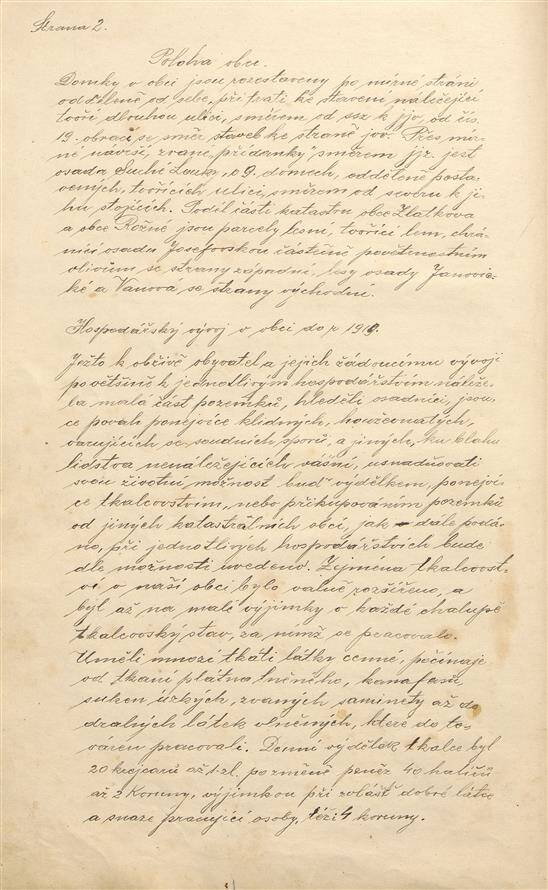 Strana 2.
Poloha obce.
Domky v obci jsou rozestaveny po mírné stráni
od sebe, při trati ke stavení náležející
tvoří dlouhou ulici, směrem od ssz k jjv, od čís.
19. obrací se směr staveb ke straně jv. Přes mír-
né návrší, zvané „přídanky" směrem jjz. jest
osada Suché Louky, o 9. domech, odděleně posta-
vených, tvořících ulici, směrem od severu k ji-
hu stojících. Podíl části katastru obce Zlatkova
a obce Rožné jsou parcely lesní, tvořící lem, chrá-
nící osadu Josefovskou částečně povětrnostním
vlivům se strany západní, lesy osady Janovic-
ké a Vanova se strany východní.
Hospodářský vývoj v obci do r 1919.
Ježto k obživě obyvatel a jejich žádoucímu vývoji
povětšině k jednotlivým hospodářstvím náleže-
la malá část pozemků, hleděli osadníci, jsou-
ce povah ponejvíce klidných, houževnatých,
varujících se soudních sporů, a jiných, ku blahu
lidstva nenáležejících vášní, usnadňovati
svou životní možnost buď výdělkem, ponejví-
ce tkalcovstvím, nebo přikupováním pozemků
od jiných katastrálních obcí, jak dále podá-
no, při jednotlivých hospodářstvích bude
dle možnosti uvedeno. Zejmena tkalcovst-
ví v naší obci bylo valně rozšířeno, a
býl až na malé výjimky v každé chalupě
tkalcovský stav, za nímž se pracovalo.
Uměli mnozí tkáti látky cenné, počínaje
od tkaní plátna lněného, kanafasu
suken úzkých, zvaných saminety až do
drahých látek vlněných, které do to-
váren pracovali. Denní výdělek tkalce byl
20 krejcarů až 1. zl. po změně peněz 40 haléřů
až 2 Koruny, výjimkou při zvlášť dobré látce
a snaze pracující osoby, též i 4 koruny.